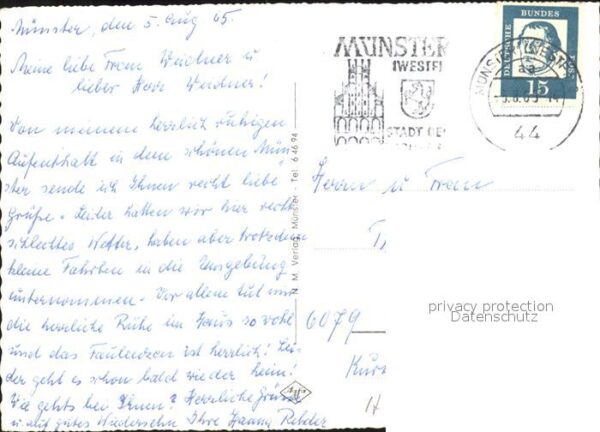 Münster, den 5. Aug 65.
Meine liebe Frau Weidner u
lieber Herr Weidner!
Von meinem herrlich ruhigen
Aufenthalt in dem schönen Mün-
ster sende ich Ihnen recht liebe
Grüße. Leider hatten wir hier recht
schlechtes Wetter, haben aber trotzdem
kleine Fahrten in die Umgebung
unternommen. Vor allem tut mir
die herrliche Ruhe im Haus so wohl
und das Faulenzen ist herrlich! Lei-
der geht es schon bald wieder heim!
Wie gehts bei Ihnen? Herrliche Grüsse
u. auf gutes Wiedersehn Ihre Hanny
N M Verlag, Münster - Tel. 6 46 94
MÜNSTER
(WESTF)
STADT DE
DEUTSCHE BUNDES
15
MÜNSTER (WESTF
44
Herrn u Frau
6079
privacy protection
Datenschutz